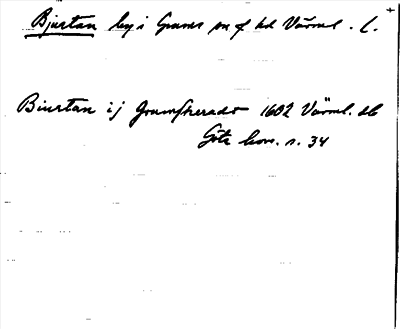 Bjurtan by i Grums sn o hd Värml. l.
Biurtan i j Grumsherado 1602 Värml. Jb
Göte kon. s. 34